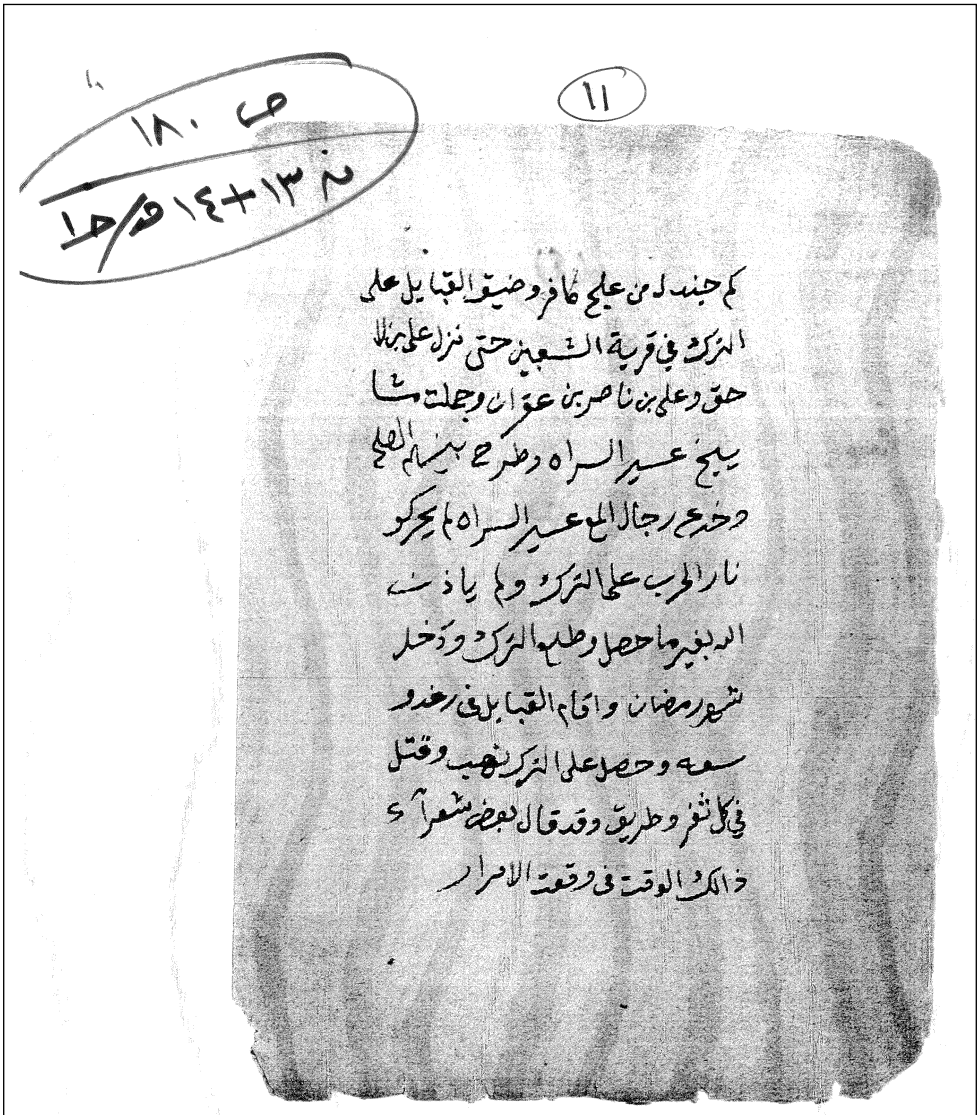 ١١
ص ١٨٠
١٣+١٤
كم جندل من علج كافر وضيق القبايل على
الترك في قرية الشعبين حتى نزل علي بن لا
حق وعلي بن ناصر بن عوان وجملت مشا
يخ عسير السراه وطرح بينهم الصلح
وخدع رجال المع عسير السراه لم يحركو
نار الحرب على الترك ولم ياذن
الله بغير ما حصل وطلع الترك ودخل
شهر رمضان واقام القبايل في رغد و
سعه وحصل على الترك نهب وقتل
في كل ثغر وطريق وقد قال بعض شعرآء
ذالك الوقت في وقعت الامرار